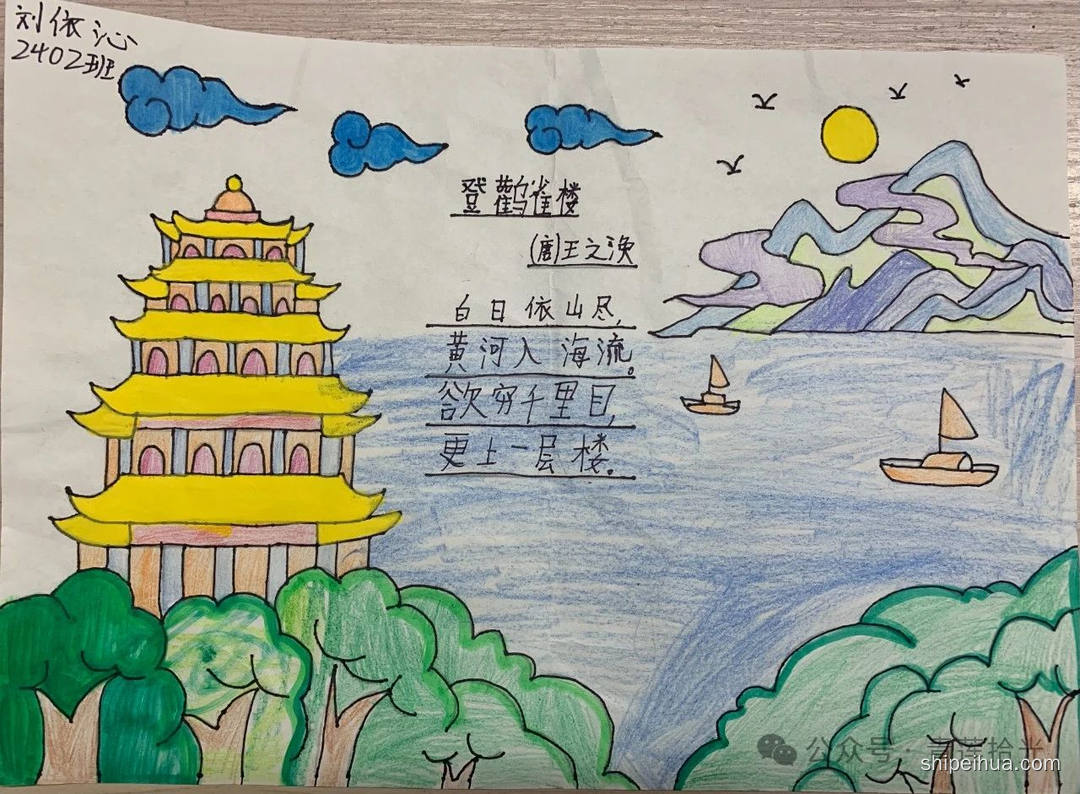 刘依沁
2402班
登鹳雀楼
(唐)王之涣
白日依山尽,
黄河入海流。
欲穷千里目,
更上一层楼。
公众号·青莲拾光
shipeihua.com